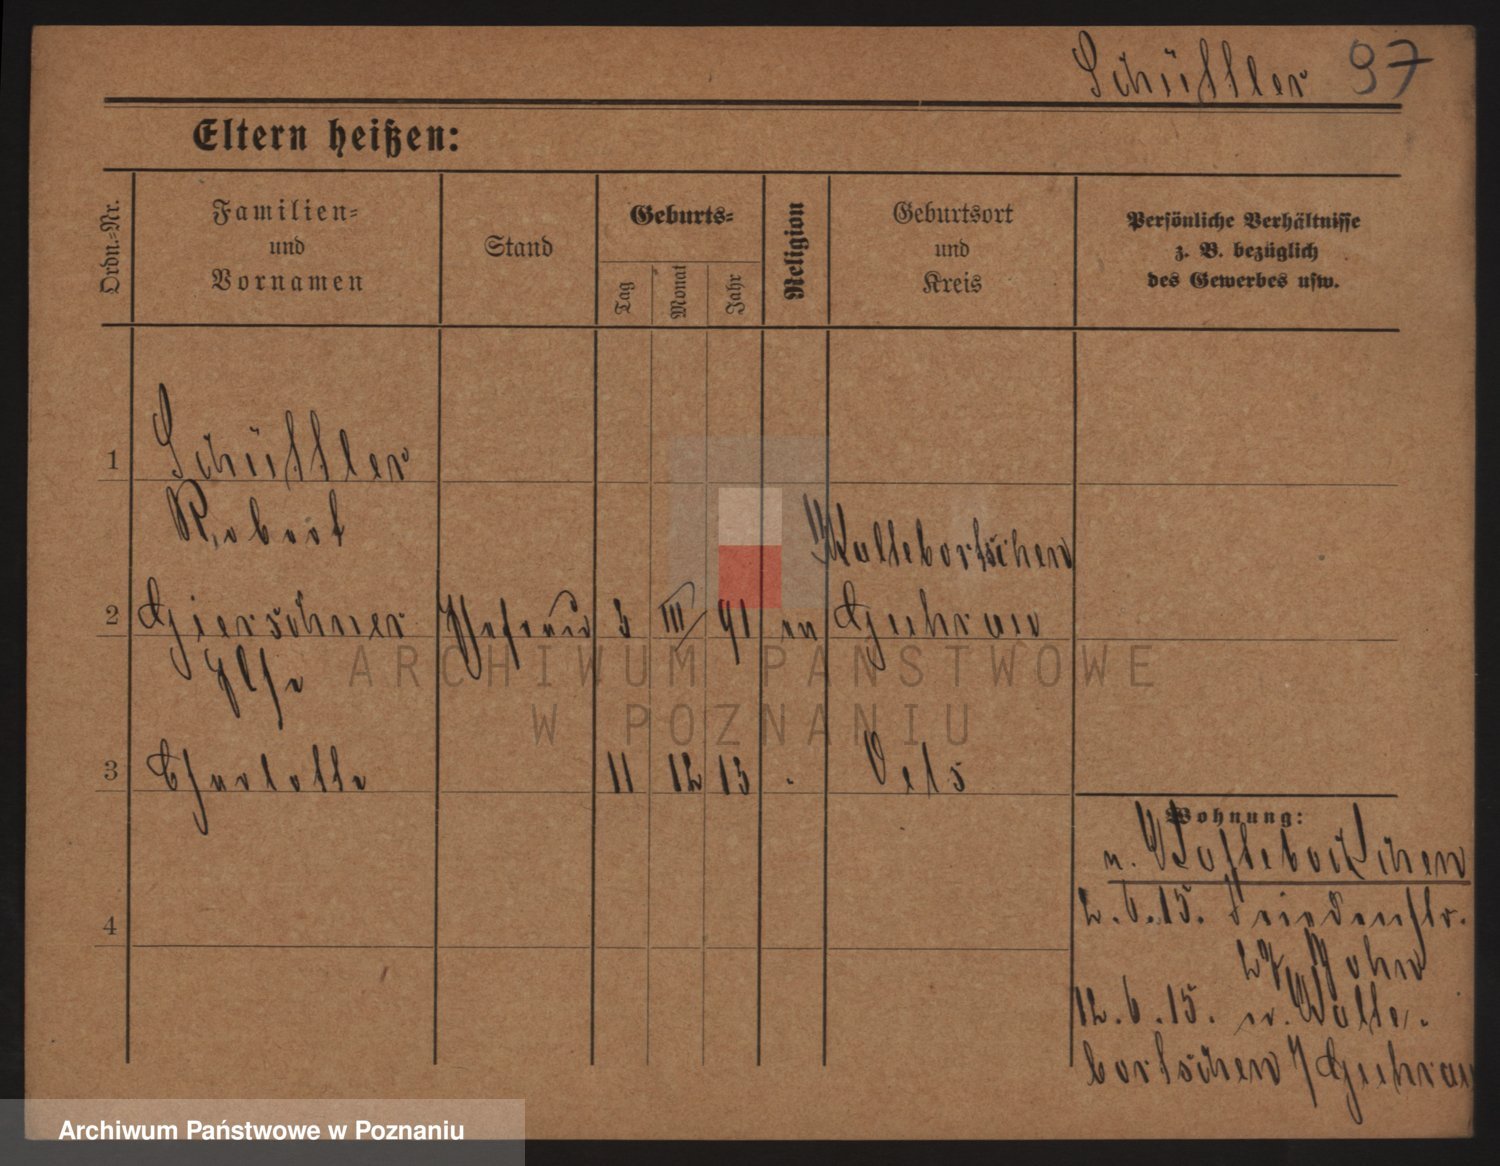 Schüttler 97
Eltern heißen:
Ordn.-Nr.
Familien-
und
Vornamen
Stand
Geburts-
Tag
Monat
Jahr
Religion
Geburtsort
und
Kreis
Persönliche Verhältnisse
z. B. bezüglich
des Gewerbes usw.
1 Schüttler
Robert
2 Gierschner 3 III 91 Guhrau
Else
3 Charlotte 11 12 13 Oels
4
Wohnung:
2.6.15. Friedenstr.
12.6.15.
bortschen / Guhrau
ARCHIWUM PAŃSTWOWE
W POZNANIU
Archiwum Państwowe w Poznaniu